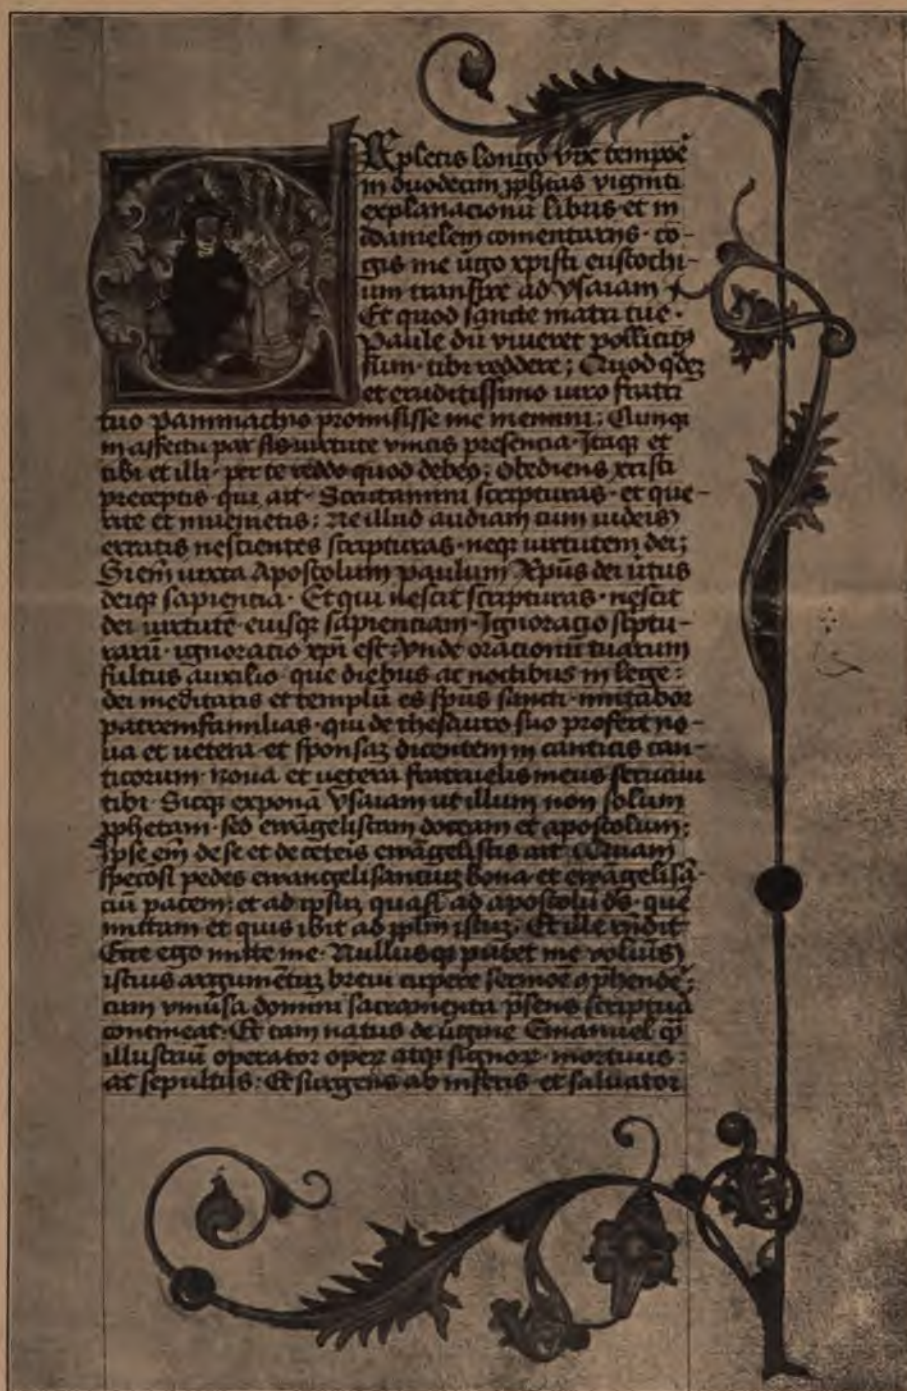 Expletis longo vix tempoē
in duodecim ꝓphetas viginti
explanacionū libris · et in
danielem comentarijs · co-
gis me v̄go xpisti eustochi-
um transire ad ysaiam ·
Et quod sancte matri tue ·
Paule dū viueret pollicitꝰ
sum · tibi reddere ; Quod qdeꝫ
et eruditissimo uiro fratri
tuo Pammachio promisisse me memini ; Cunqꝫ
in affectu par sis uirtute vincis presencia · Itaqꝫ et
tibi et illi · per te reddo quod debeo ; obediens xristi
preceptis qui ait · Scrutamini scripturas · et que-
rite et inuenietis ; Ne illud audiam cum iudeis
erratis nescientes scripturas · neqꝫ uirtutem dei ;
Si em̄ iuxta Apostolum paulum Xpūs dei ūtus
deiqꝫ sapiencia · Et qui nescit scripturas · nescit
dei uirtutē eiusqꝫ sapienciam · Ignoracio scptu-
rarū · ignoracio xpī est ; Vnde orationū tuarum
fultus auxilio · que diebus ac noctibus in lege :
dei meditaris et templū es spūs sancti · imitabor
patremfamilias · qui de thesauro suo profert no-
ua et uetera · et sponsaꝫ dicentem in canticis can-
ticorum · noua et uetera fratruelis meus seruaui
tibi · Sicqꝫ exponā ysaiam ut illum non solum
ꝓphetam · sed ewāgelistam doceam et apostolum ;
Ipse em̄ de se et de ceteris ewāgelistis ait · Quam
speciosi pedes ewangelisanciuꝫ bona · et ewāgelisā-
ciū pacem : et ad ipsuꝫ quasi ad apostolū ds̄ · quē
mittam et quis ibit ad pplm istuꝫ · Et ille rn̄dit
Ecce ego mitte me · Nullusqꝫ putet me voluīs
istius argumētuꝫ breui cupere sermōe ꝯphendē ;
cum vniūsa domini sacramenta p̄sens scriptura
contineat · Et tam natus de v̄gine Emanuel q̄
illustriū operator operꝝ atqꝫ signoꝝ · mortuus :
ac sepultus : Et surgens ab inferis · et saluator